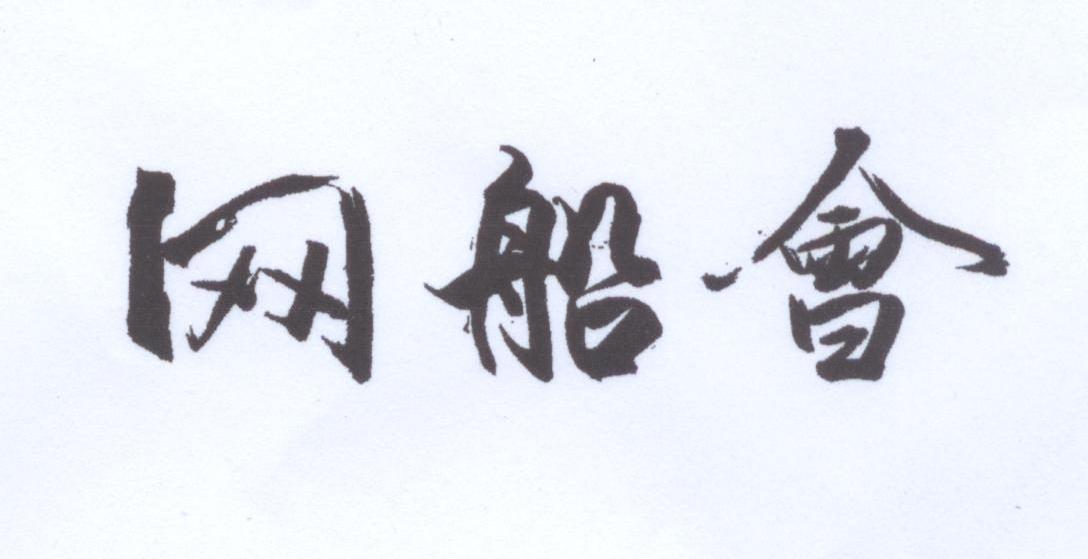 网船會